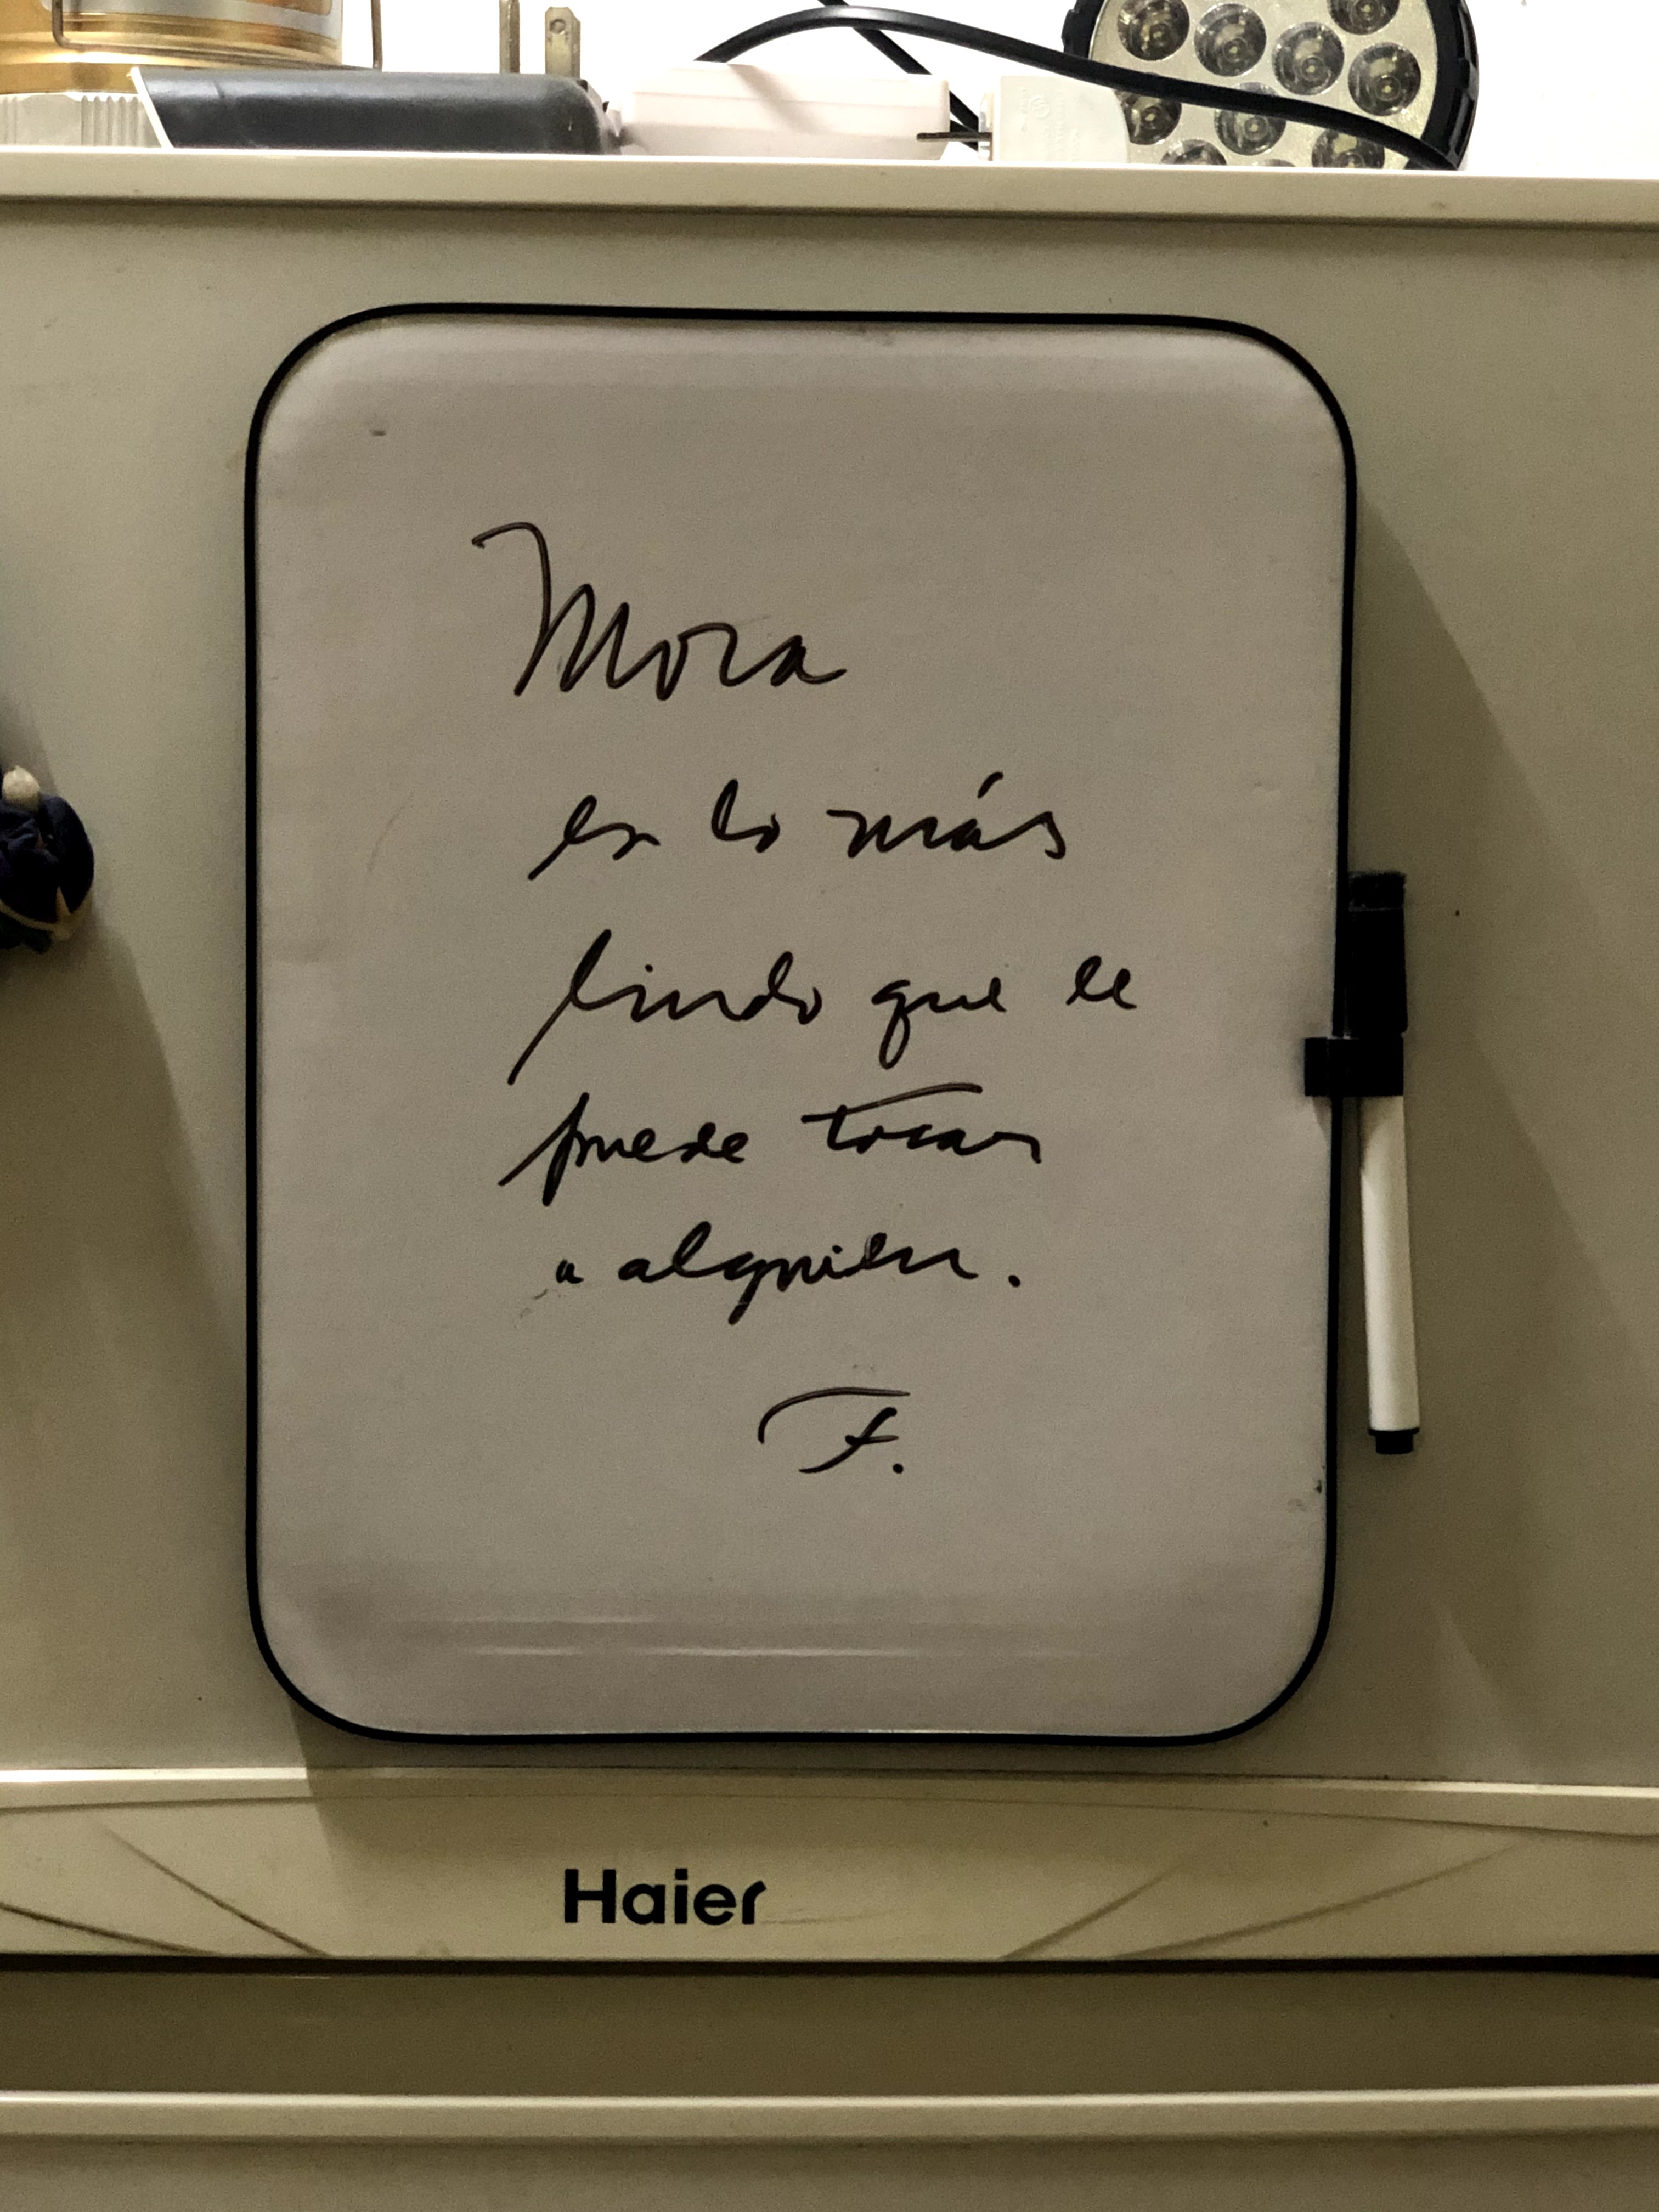 Mora
es lo más
lindo que le
puede tocar
a alguien.
F.
Haier